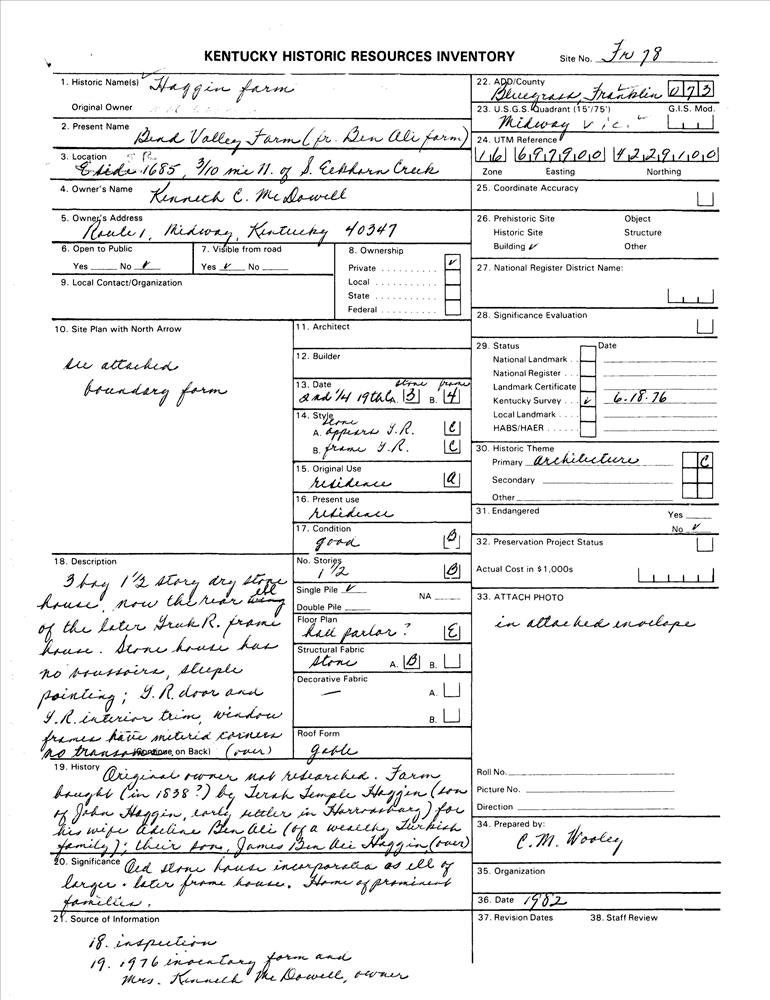 KENTUCKY HISTORIC RESOURCES INVENTORY
Site No. Fr 78
1. Historic Name(s) Haggin farm
Original Owner
2. Present Name Bend Valley Farm (fr. Ben Ali farm)
3. Location
1685, 3/10 mi N. of S. Elkhorn Creek
4. Owner's Name Kenneth C. McDowell
5. Owner's Address Route 1, Midway, Kentucky 40347
6. Open to Public
Yes No ✓
7. Visible from road
Yes ✓ No
8. Ownership
Private ✓
Local
State
Federal
9. Local Contact/Organization
10. Site Plan with North Arrow
see attached
boundary form
11. Architect
12. Builder
13. Date stone frame
2nd 1/4 19th C. A. 3 B. 4
14. Style
A. stone appears G.R. C
B. frame G.R. C
15. Original Use
residence A
16. Present use
residence
17. Condition
good B
18. Description
3 bay 1½ story dry stone
house, now the rear ell
of the later Greek R. frame
house. Stone house has
no voussoirs, steeple
pointing; G.R. door and
G.R. interior trim, window
frames have mitered corners
no transom (Continue on Back) (over)
No. Stories
1½ B
Single Pile ✓ NA
Double Pile
Floor Plan
hall parlor? E
Structural Fabric
stone A. B B.
Decorative Fabric
— A.
B.
Roof Form
gable
19. History Original owner not researched. Farm
bought (in 1838?) by Terah Temple Haggin (son
of John Haggin, early settler in Harrodsburg) for
his wife Adeline Ben Ali (of a wealthy Turkish
family); their son, James Ben Ali Haggin (over)
20. Significance Old stone house incorporated as ell of
larger & later frame house. Home of prominent
families.
21. Source of Information
18. inspection
19. 1976 inventory form and
Mrs. Kenneth McDowell, owner
22. ADD/County
Bluegrass, Franklin 073
23. U.S.G.S. Quadrant (15'/75') G.I.S. Mod.
Midway vic.
24. UTM Reference
16 697900 4229100
Zone Easting Northing
25. Coordinate Accuracy
26. Prehistoric Site Object
Historic Site Structure
Building ✓ Other
27. National Register District Name:
28. Significance Evaluation
29. Status Date
National Landmark
National Register
Landmark Certificate
Kentucky Survey ✓ 6-18-76
Local Landmark
HABS/HAER
30. Historic Theme
Primary architecture C
Secondary
Other
31. Endangered Yes
No ✓
32. Preservation Project Status
Actual Cost in $1,000s
33. ATTACH PHOTO
in attached envelope
Roll No.
Picture No.
Direction
34. Prepared by:
C.M. Wooley
35. Organization
36. Date 1982
37. Revision Dates 38. Staff Review